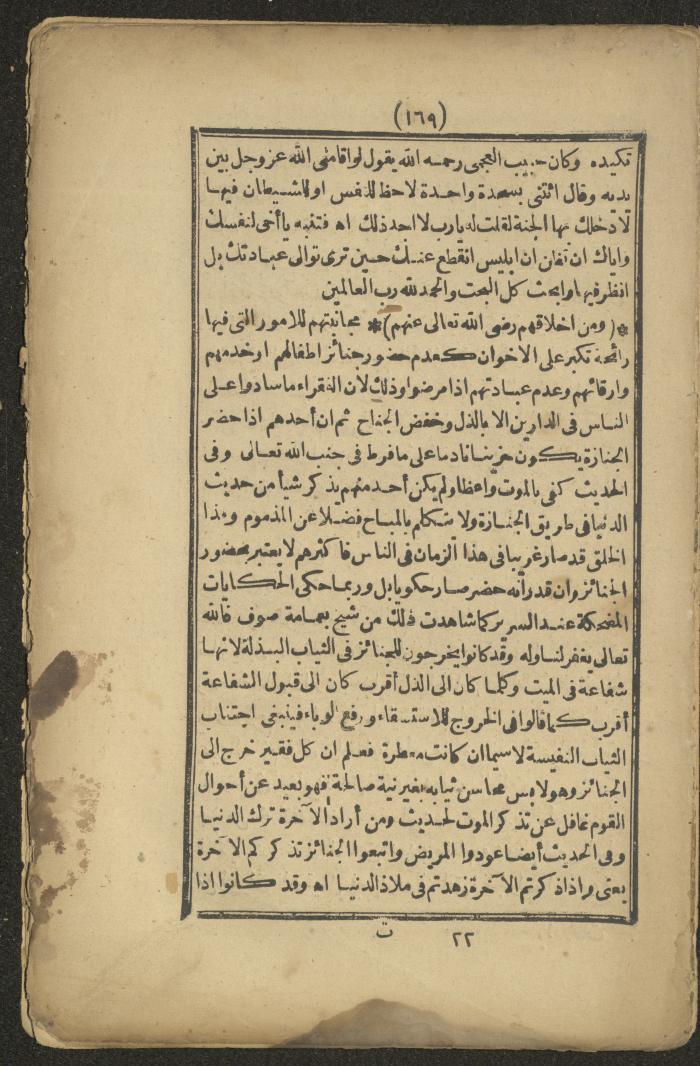 (١٦٩)
فكيده وكان حبيب العجمى رحمه الله يقول لو اقامنى الله عز وجل بين
يديه وقال ائتنى بسجدة واحدة لاحظ للنفس او للشيطان فيها
لادخلك بها الجنة لقلت له يارب لا احد ذلك اه فتنبه ياأخى لنفسك
واياك ان تظن ان ابليس انقطع عنك حين ترى توالى عبادتك بل
انظر فيها وابحث كل البحث والحمد لله رب العالمين
*(ومن اخلاقهم رضى الله تعالى عنهم)* مجانبتهم للامور التى فيها
رائحة تكبر على الاخوان كعدم حضور جنائز اطفالهم او خدمهم
وارقائهم وعدم عيادتهم اذا مرضوا وذلك لان الفقراء ما سادوا على
الناس فى الدارين الا بالذل وخفض الجناح ثم ان أحدهم اذا حضر
الجنازة يكون حزينا نادما على ما فرط فى جنب الله تعالى وفى
الحديث كفى بالموت واعظا ولم يكن أحد منهم يذكر شيأ من حديث
الدنيا فى طريق الجنازة ولا يتكلم بالمباح فضلا عن المذموم وهذا
الخلق قد صار غريبا فى هذا الزمان فى الناس فاكثرهم لا يعتبر بحضور
الجنائز وان قدر أنه حضر صار حكويا بل وربما حكى الحكايات
المضحكة عند السرير كما شاهدت ذلك من شيخ بعمامة صوف فالله
تعالى يغفر لنا وله وقد كانوا يخرجون للجنائز فى الثياب البذلة لانها
شفاعة فى الميت وكلما كان الى الذل أقرب كان الى قبول الشفاعة
أقرب كما قالوا فى الخروج للاستسقاء ورفع الوباء فينبغى اجتناب
الثياب النفيسة لاسيما ان كانت معطرة فعلم ان كل فقير خرج الى
الجنائز وهو لابس محاسن ثيابه بغير نية صالحة فهو بعيد عن أحوال
القوم غافل عن تذكر الموت لحديث ومن أراد الآخرة ترك الدنيا
وفى الحديث أيضا عودوا المريض واتبعوا الجنائز تذكركم الآخرة
يعنى واذا ذكرتم الآخرة زهدتم فى ملاذ الدنيا اه وقد كانوا اذا
٢٢ ت